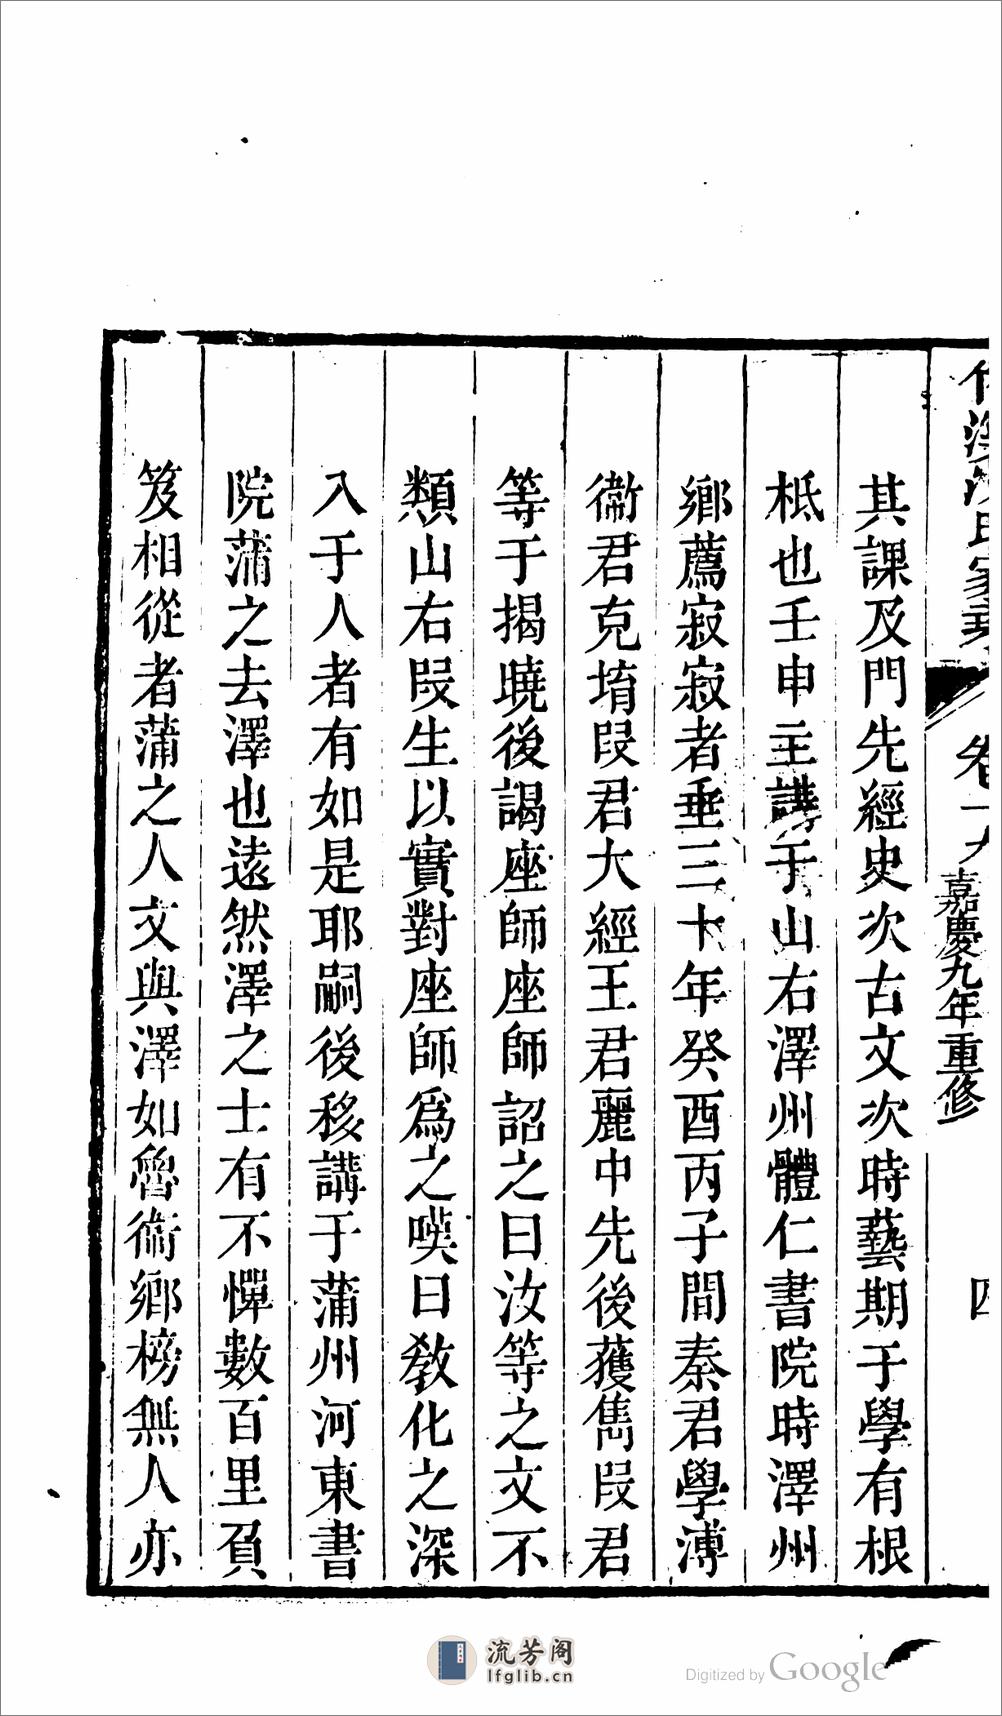 竹溪沈氏家乘
卷十九
嘉慶九年重修
四
其課及門先經史次古文次時藝期于學有根
柢也壬申主講于山右澤州體仁書院時澤州
鄉薦寂寂者垂三十年癸酉丙子間秦君學溥
衞君克堉段君大經王君麗中先後獲雋段君
等于揭曉後謁座師座師詔之曰汝等之文不
類山右段生以實對座師爲之嘆曰教化之深
入于人者有如是耶嗣後移講于蒲州河東書
院蒲之去澤也遠然澤之士有不憚數百里負
笈相從者蒲之人文與澤如魯衞鄉榜無人亦
流芳阁
lfglib.cn
Digitized by Google